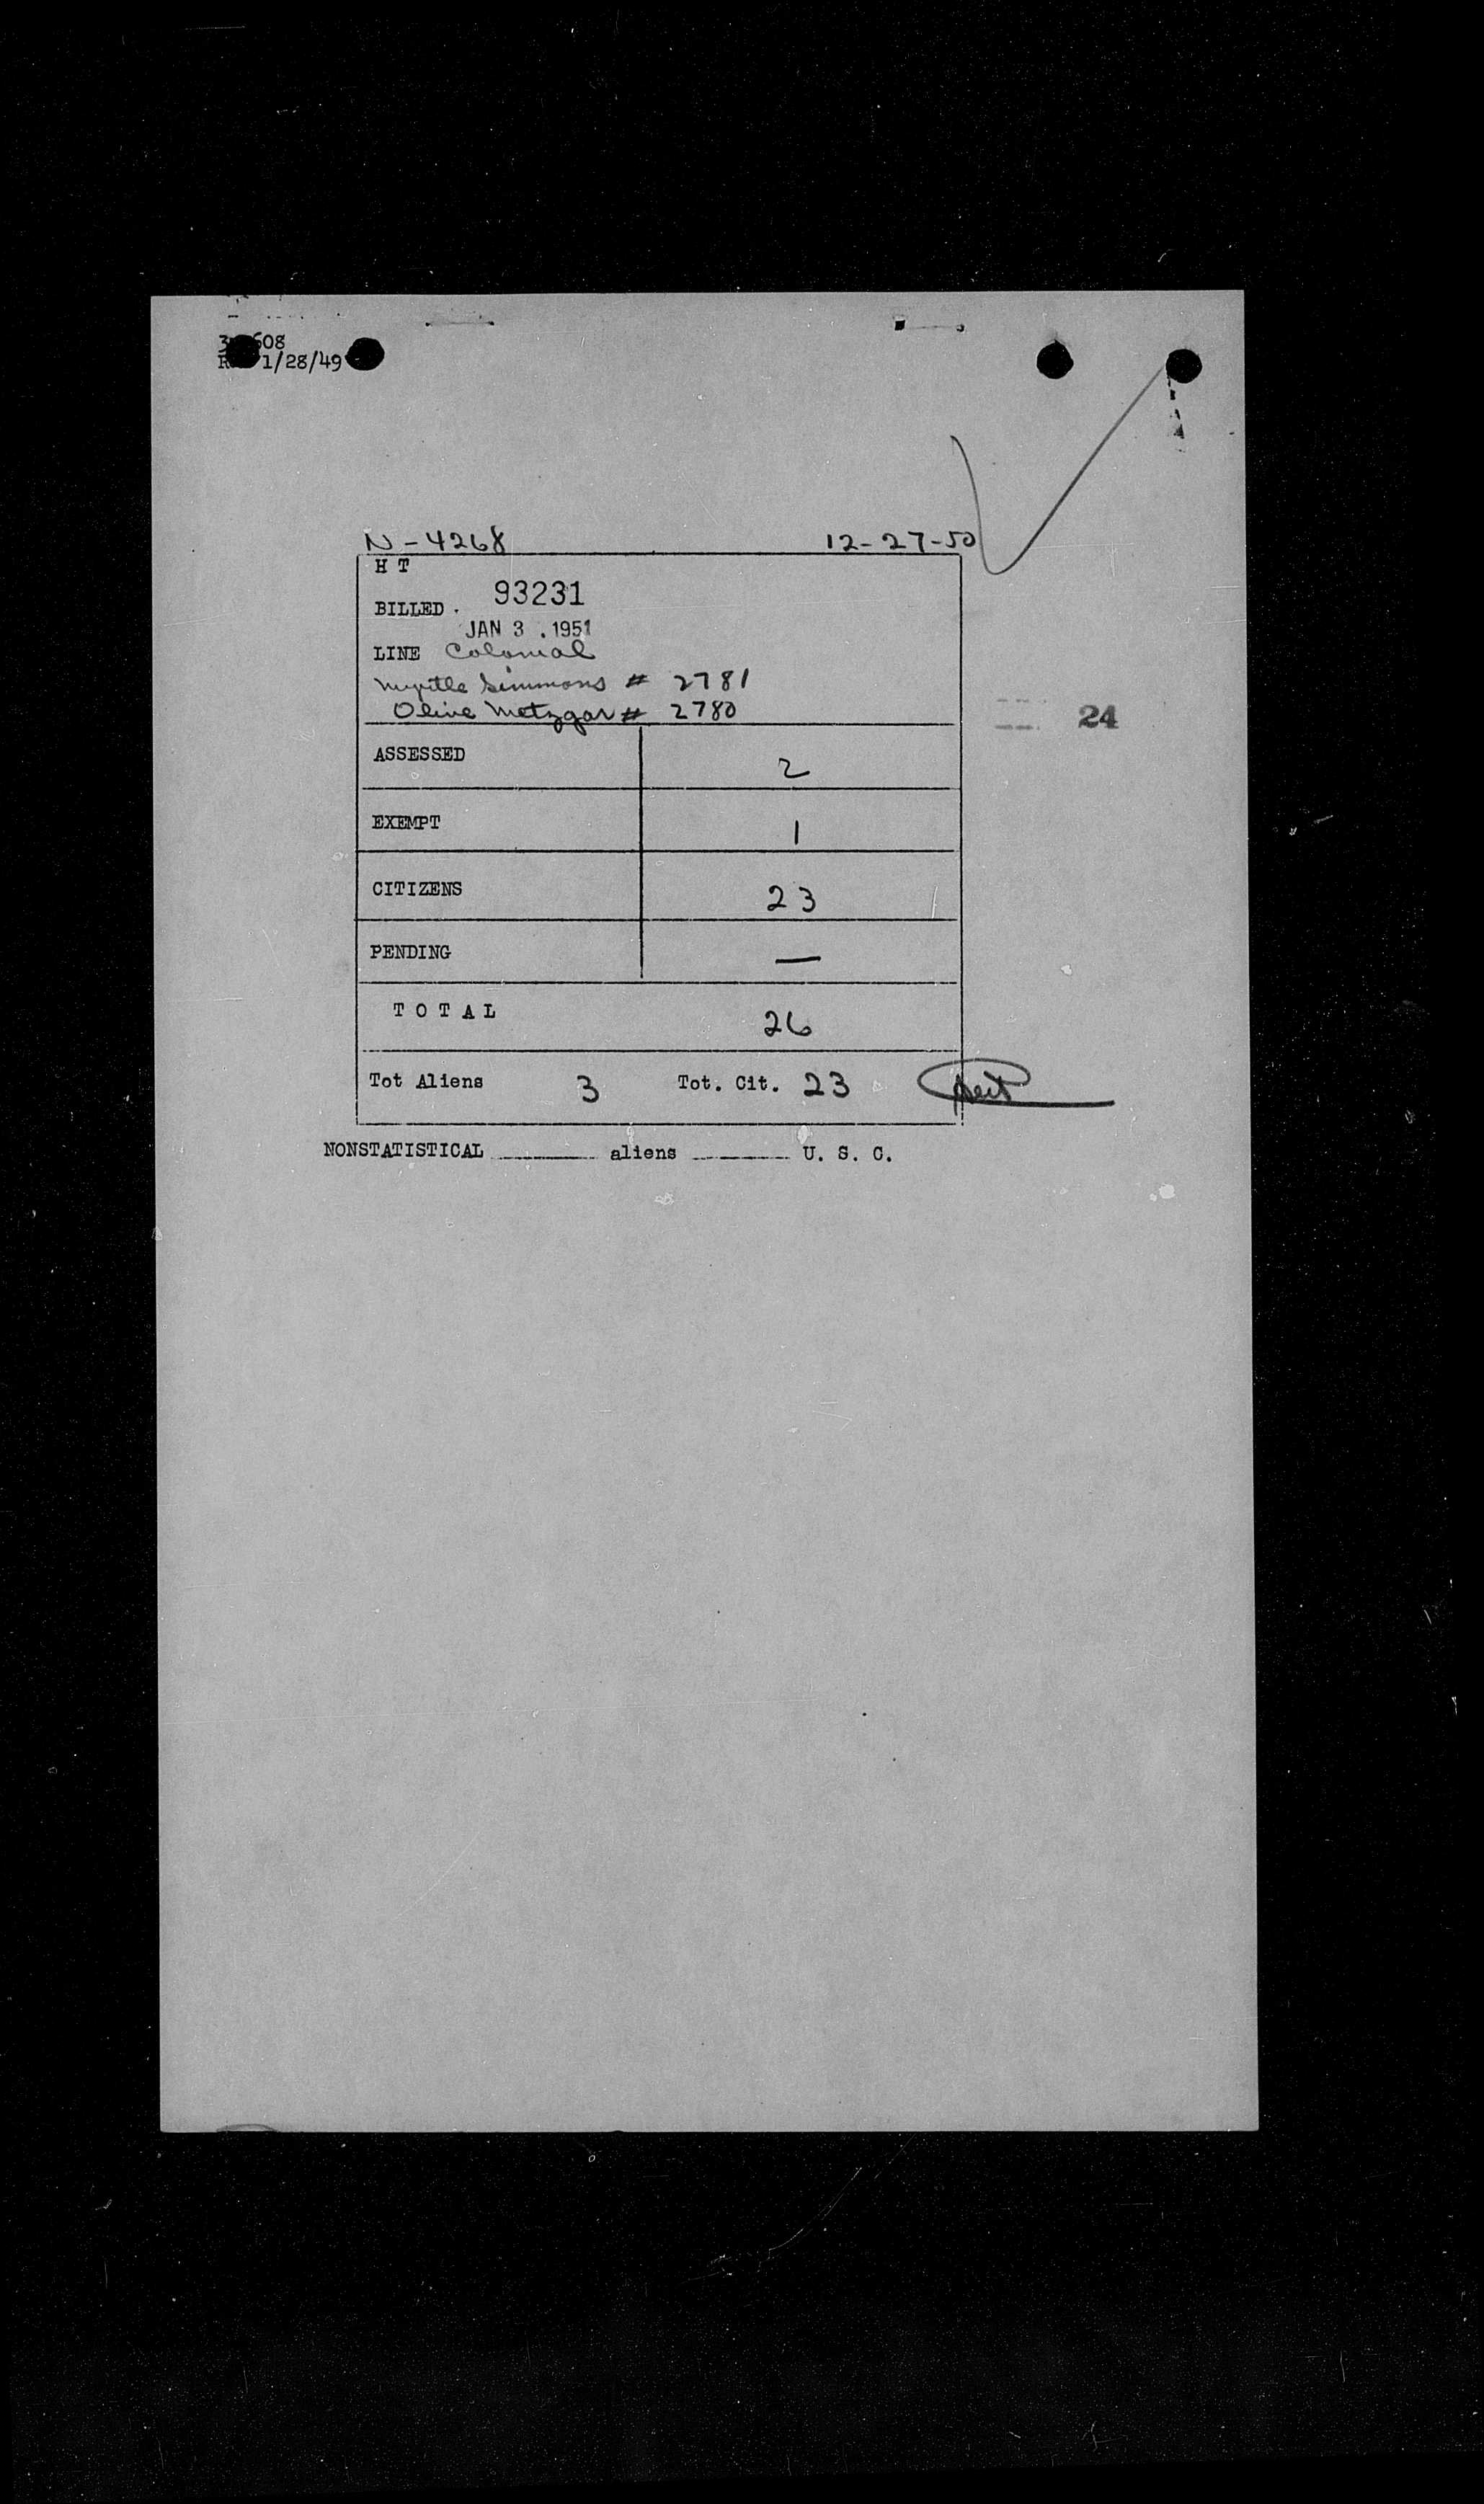 608
1/28/49
N-4268 12-27-50
H T
BILLED. 93231
JAN 3. 1951
LINE Colonial
Myrtle Simmons # 2781
Olive Metzgar # 2780
24
ASSESSED 2
EXEMPT 1
CITIZENS 23
PENDING —
T O T A L 26
Tot Aliens 3 Tot. Cit. 23
NONSTATISTICAL ______ aliens ______ U. S. C.